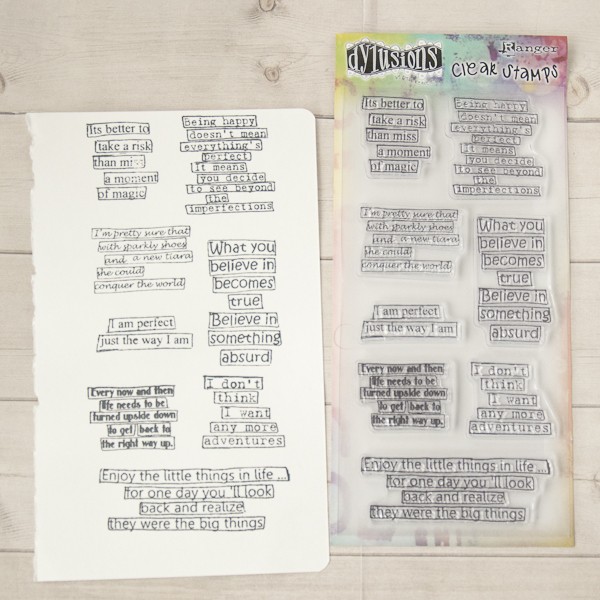 Its better to
take a risk
than miss
a moment
of magic
Being happy
doesn't mean
everything's
perfect
It means
you decide
to see beyond
the
imperfections
I'm pretty sure that
with sparkly shoes
and a new tiara
she could
conquer the world
What you
believe in
becomes
true
Believe in
something
absurd
I am perfect
just the way I am
Every now and then
life needs to be
turned upside down
to get back to
the right way up.
I don't
think
I want
any more
adventures
Enjoy the little things in life ...
for one day you 'll look
back and realize
they were the big things
dylusions
Ranger
clear stamps
Its better to
take a risk
than miss
a moment
of magic
Being happy
doesn't mean
everything's
perfect
It means
you decide
to see beyond
the
imperfections
I'm pretty sure that
with sparkly shoes
and a new tiara
she could
conquer the world
What you
believe in
becomes
true
Believe in
something
absurd
I am perfect
just the way I am
Every now and then
life needs to be
turned upside down
to get back to
the right way up.
I don't
think
I want
any more
adventures
Enjoy the little things in life ...
for one day you 'll look
back and realize
they were the big things